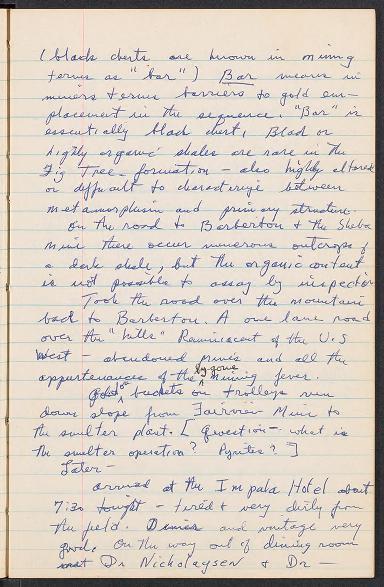 (black cherts are known in mining
terms as "bar") Bar means in
miners terms barriers to gold em-
placement in the sequence. "Bar" is
essentially black chert, Black or
highly organic shales are rare in the
Fig Tree formation - also highly altered
or difficult to characterize between
metamorphism and primary structure.
On the road to Barberton & the Sheba
mine there occur numerous outcrops of
a dark shale, but the organic content
is not possible to assay by inspection
Took the road over the mountain
back to Barberton. A one lane road
over the "hills" Reminiscent of the U.S
West - abandoned mines and all the
appurtenances of the bygone mining fever.
Gold ore buckets on trolleys run
down slope from Fairview Mine to
the smelter plant. [Question - what is
the smelter operation? Pyrites?]
Later -
arrived at the Impala Hotel about
7:30 tonight - tired & very dirty from
the field. Dinner and vintage very
good. On the way out of dining room
met Dr Nicholaysen & Dr -